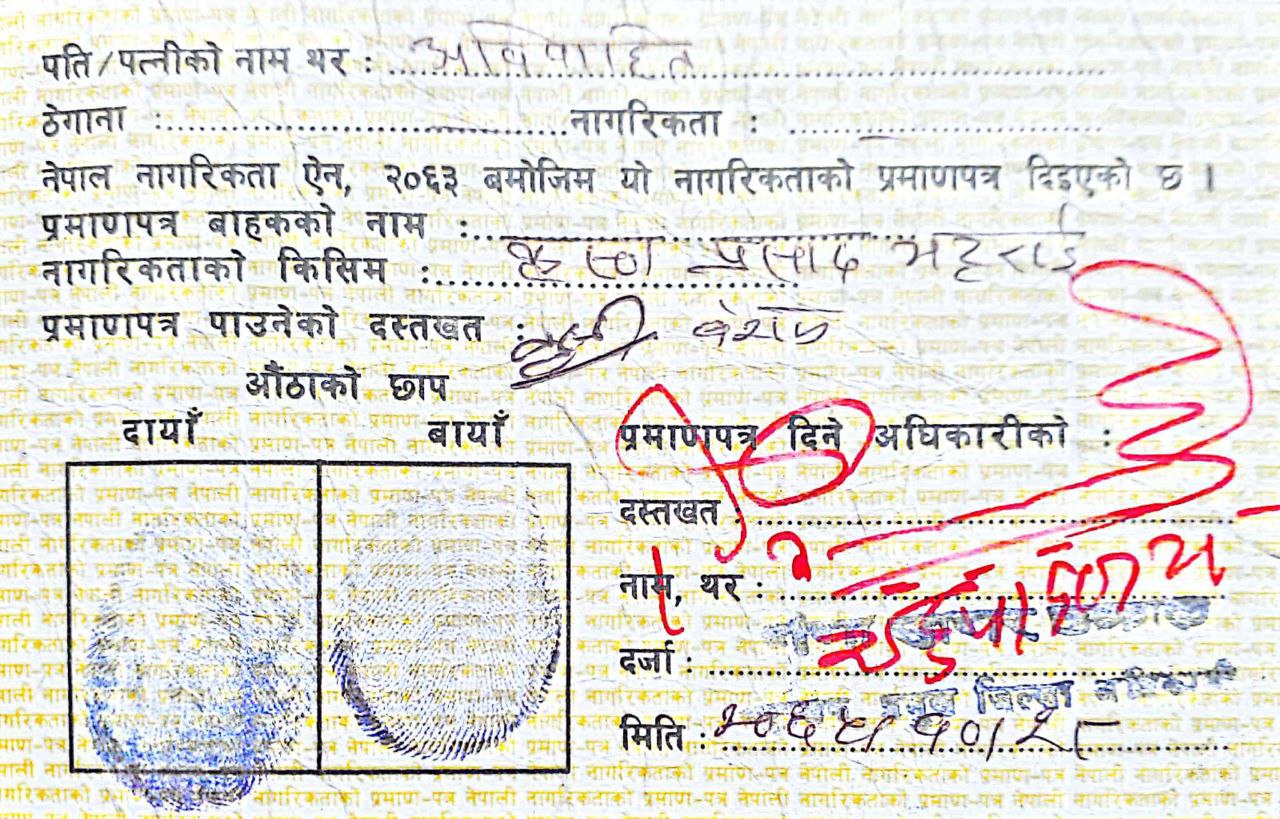 पति/पत्नीको नाम थर : अविवाहित
ठेगाना : नागरिकता :
नेपाल नागरिकता ऐन, २०६३ बमोजिम यो नागरिकताको प्रमाणपत्र दिइएको छ ।
प्रमाणपत्र बाहकको नाम : प्रसाद भट्टराई
नागरिकताको किसिम : वंशज
प्रमाणपत्र पाउनेको दस्तखत :
औंठाको छाप
दायाँ बायाँ
प्रमाणपत्र दिने अधिकारीको :
दस्तखत :
नाम, थर :
दर्जा : प्रमुख जिल्ला अधिकारी
मिति :